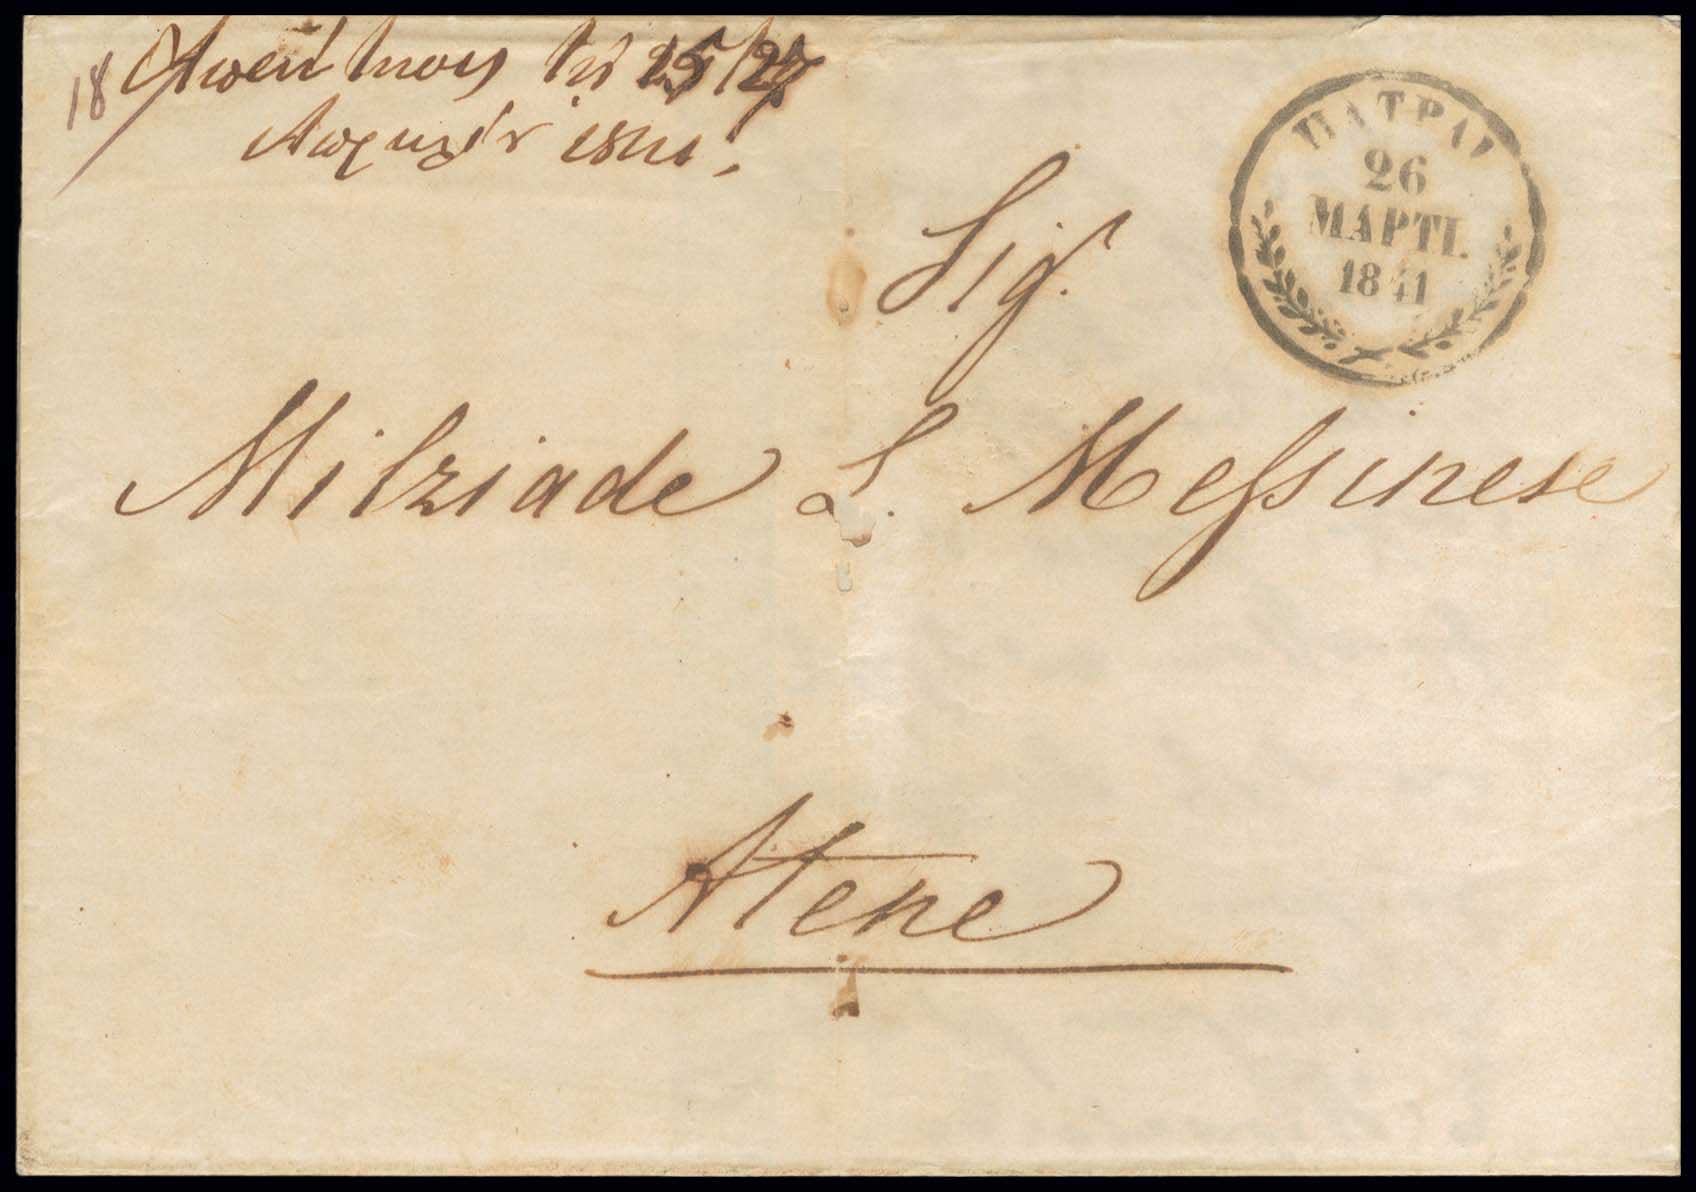 18
25/27
ΠΑΤΡΑΙ
26
ΜΑΡΤΙ.
1841
Sigr.
Milziade L. Messinese
Atene